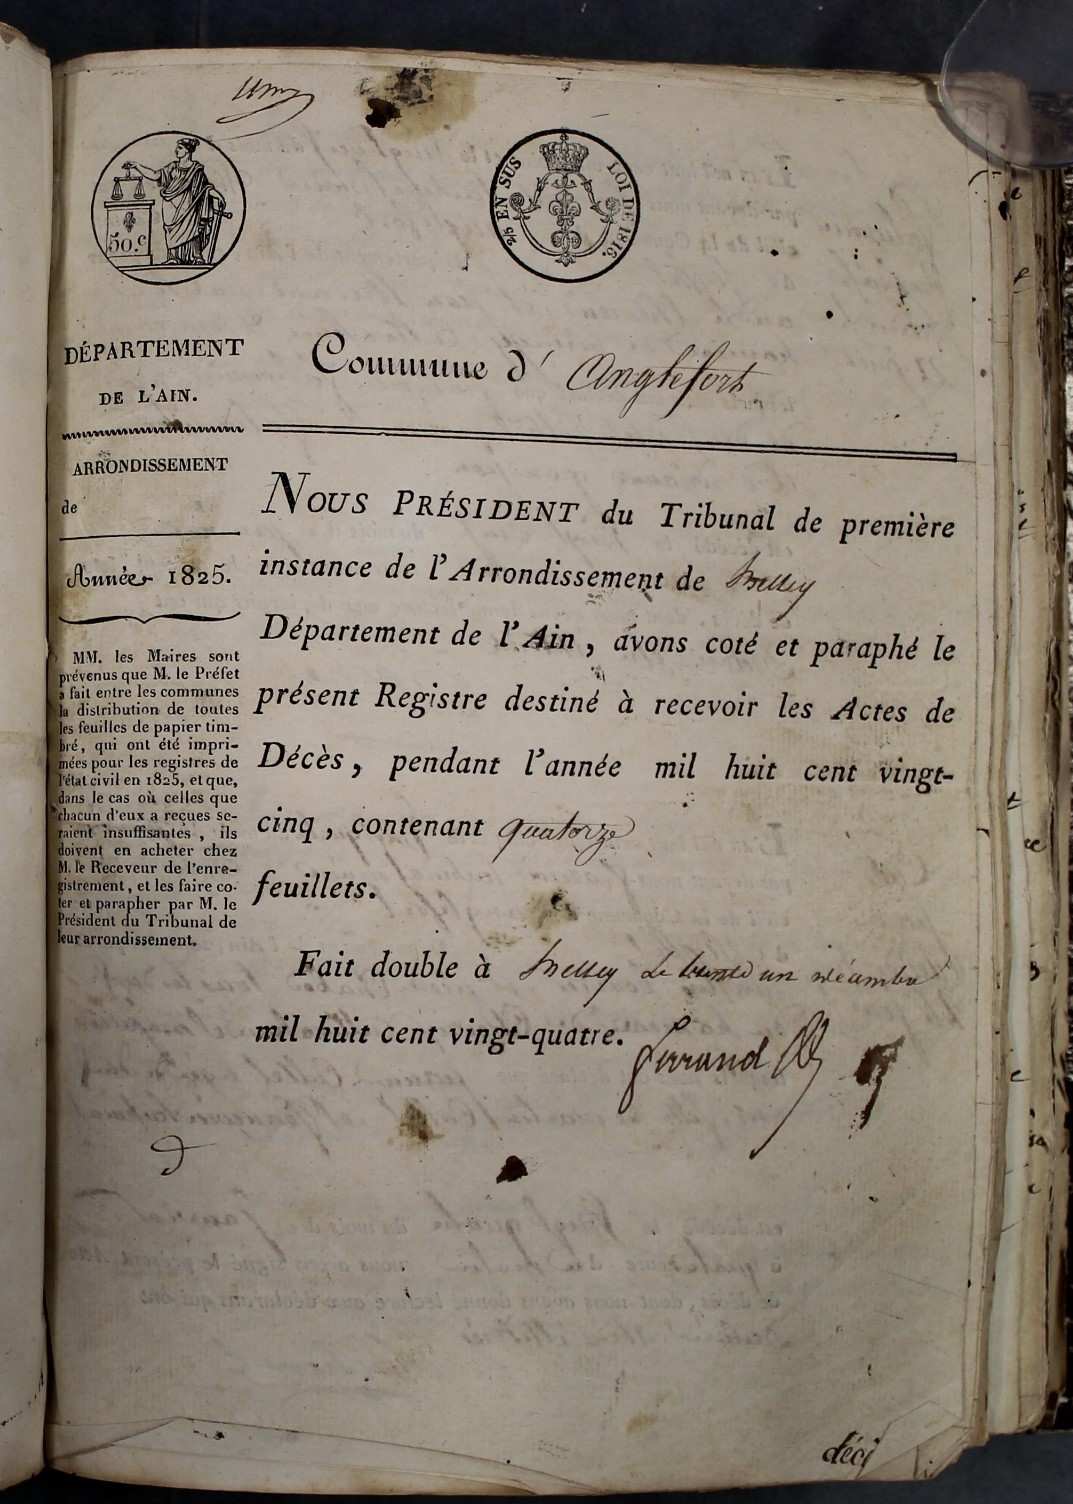 50.c
2/5 EN SUS LOI DE 1816.
DÉPARTEMENT
DE L'AIN.
ARRONDISSEMENT
de
Année 1825.
MM. les Maires sont
prévenus que M. le Préfet
a fait entre les communes
la distribution de toutes
les feuilles de papier tim-
bré, qui ont été impri-
mées pour les registres de
l'état civil en 1825, et que,
dans le cas où celles que
chacun d'eux a reçues se-
raient insuffisantes, ils
doivent en acheter chez
M. le Receveur de l'enre-
gistrement, et les faire co-
ter et parapher par M. le
Président du Tribunal de
leur arrondissement.
Commune d' Anglefort
NOUS PRÉSIDENT du Tribunal de première
instance de l'Arrondissement de Belley
Département de l'Ain, avons coté et paraphé le
présent Registre destiné à recevoir les Actes de
Décès, pendant l'année mil huit cent vingt-
cinq, contenant quatorze
feuillets.
Fait double à Belley Le trente un décembre
mil huit cent vingt-quatre.
Ferrand
déci